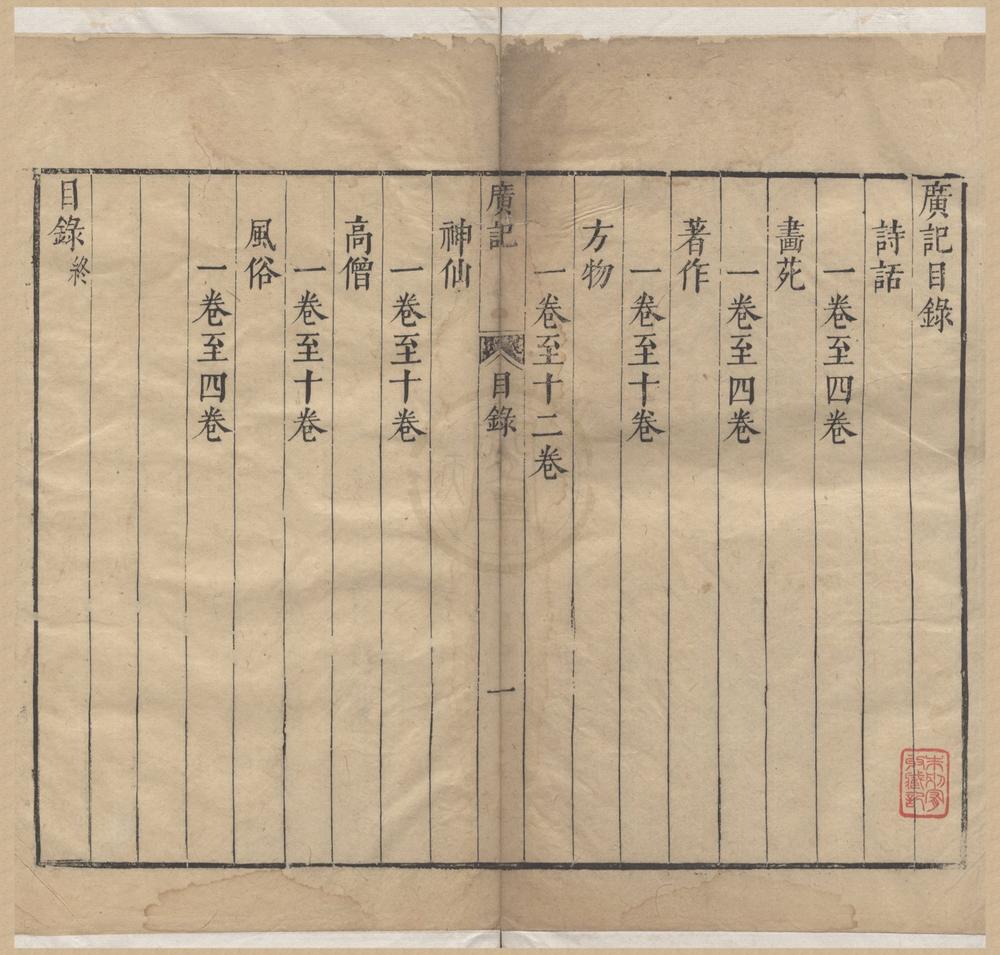 廣記目錄
詩話
一卷至四卷
畵苑
一卷至四卷
著作
一卷至十卷
方物
一卷至十二卷
廣記
目錄
一
神仙
一卷至十卷
高僧
一卷至十卷
風俗
一卷至四卷
目錄終